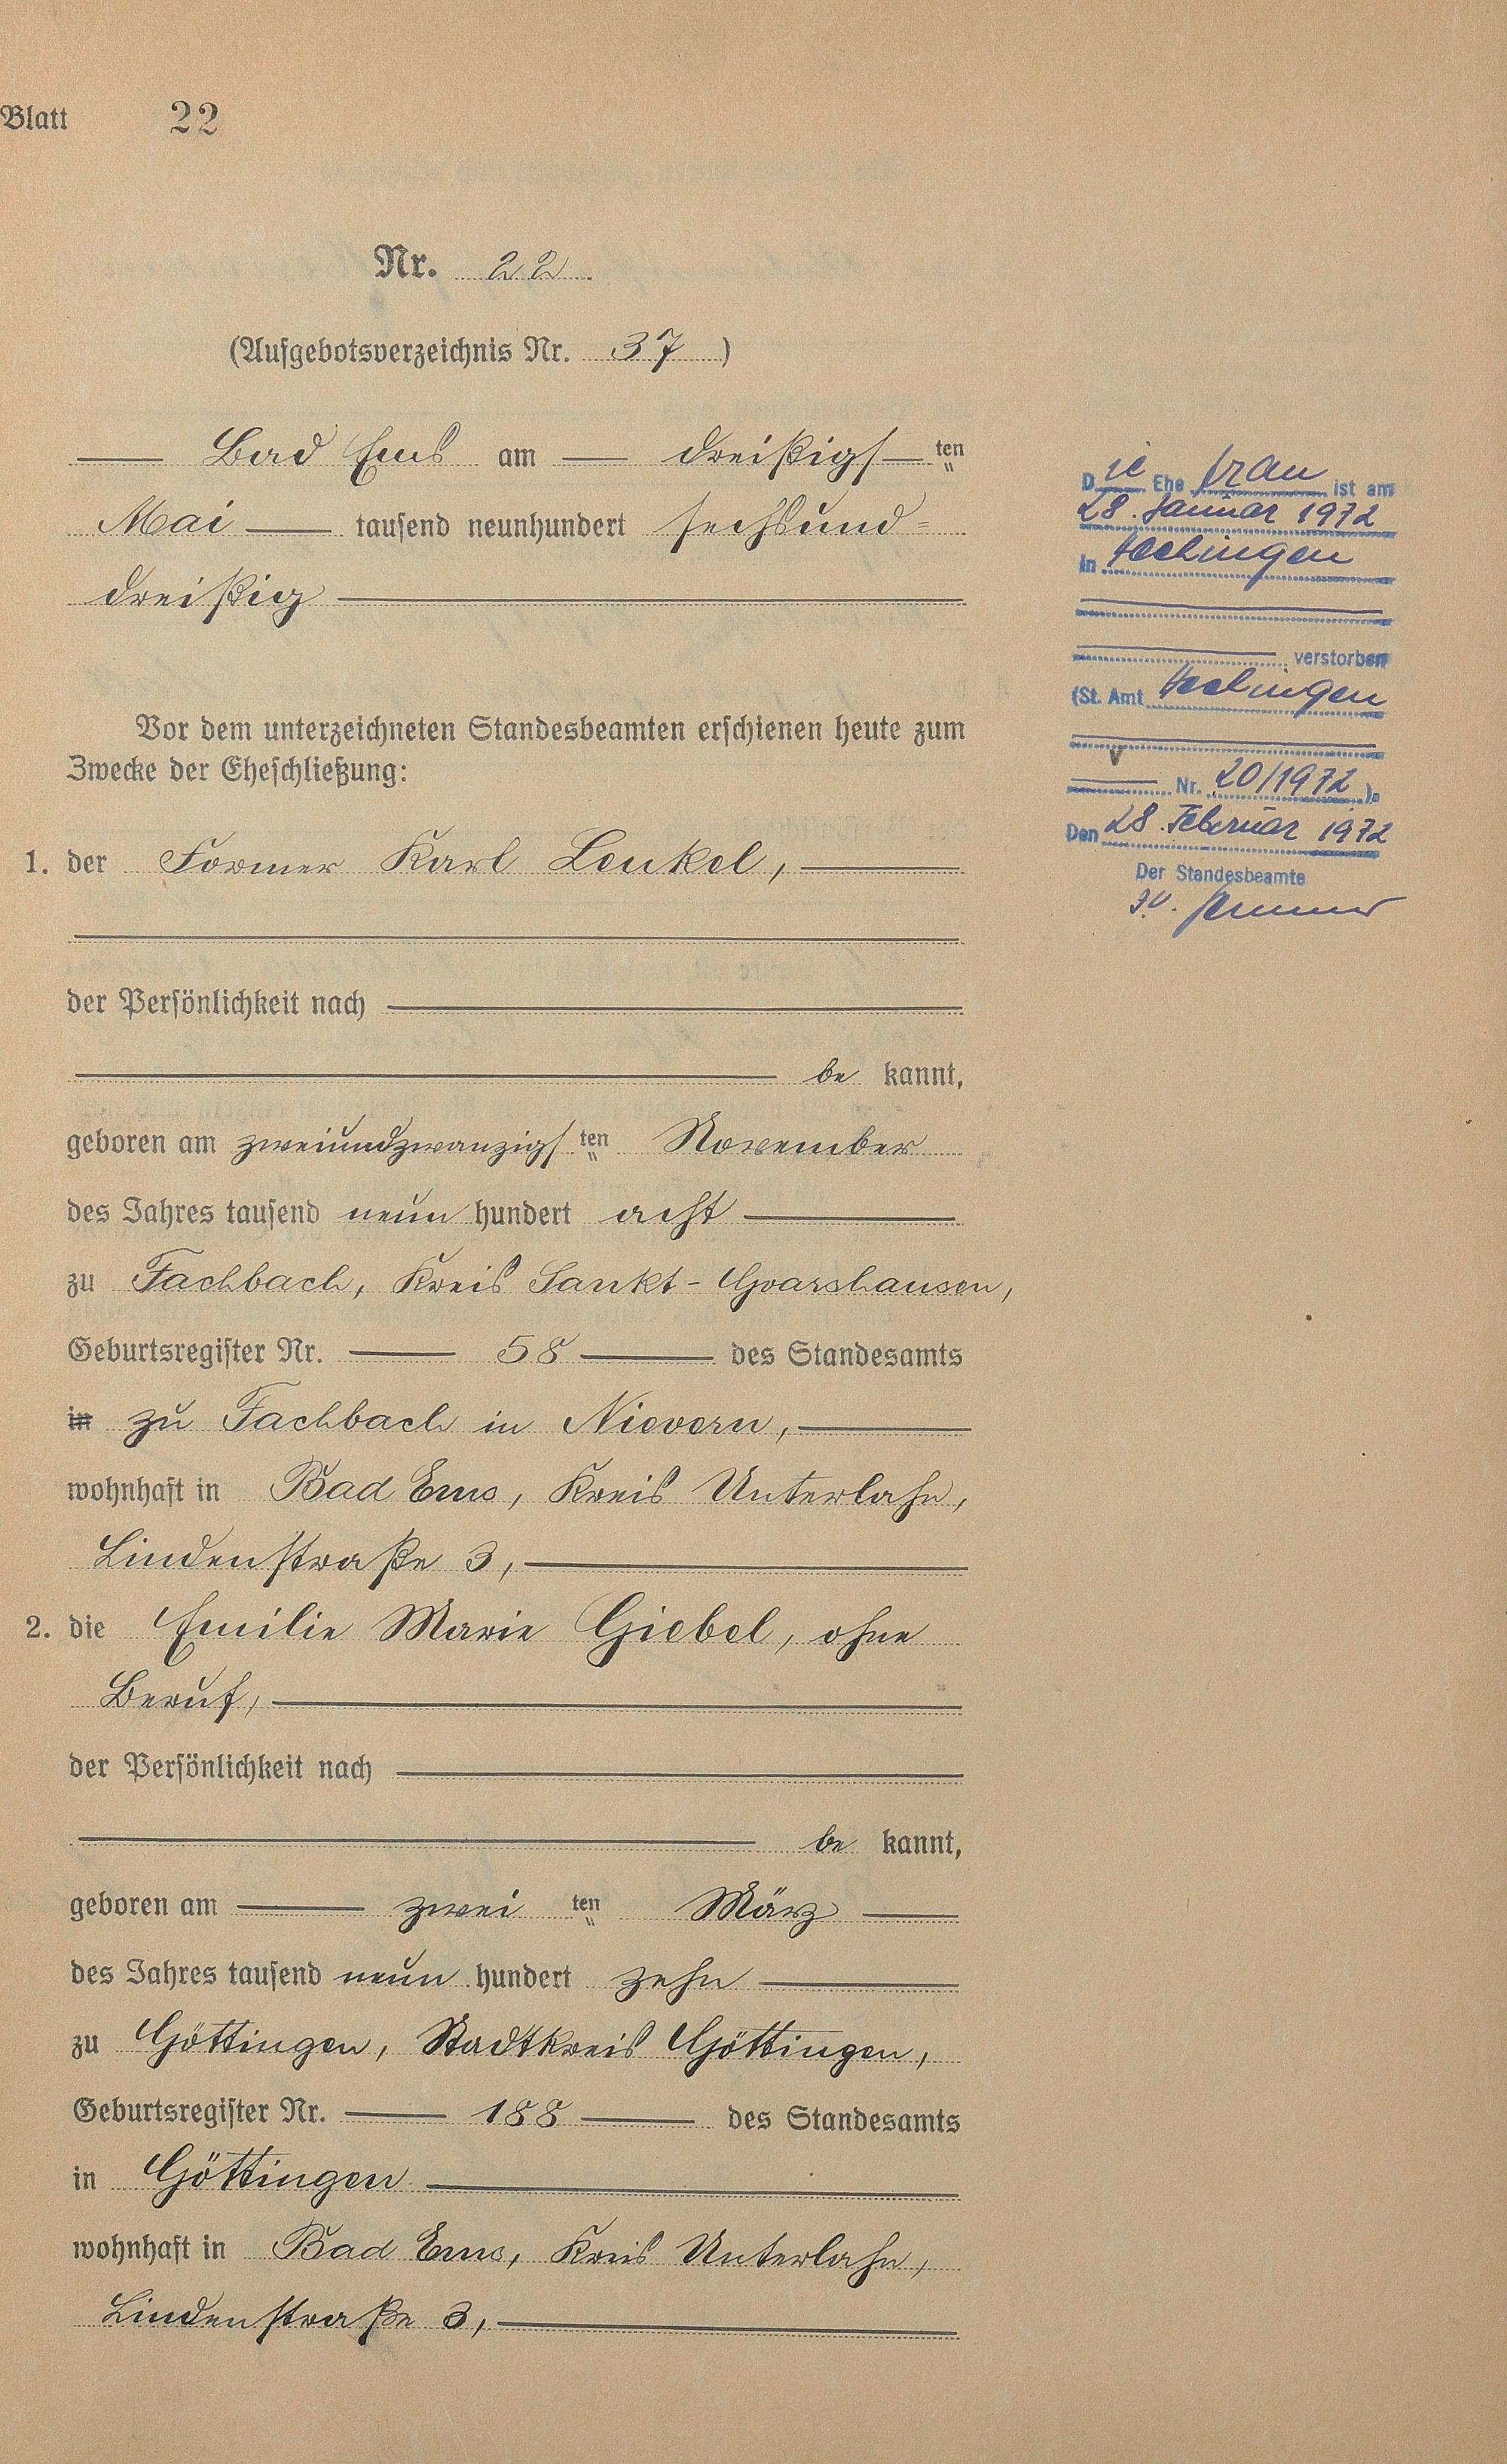 Blatt 22
Nr. 22
(Aufgebotsverzeichnis Nr. 37)
Bad Ems am dreißigsten
Mai tausend neunhundert sechsund=
dreißig
Vor dem unterzeichneten Standesbeamten erschienen heute zum
Zwecke der Eheschließung:
1. der Former Karl Lenkel,
der Persönlichkeit nach
be kannt,
geboren am zweiundzwanzigsten November
des Jahres tausend neun hundert acht
zu Fachbach, Kreis Sankt-Goarshausen,
Geburtsregister Nr. 58 des Standesamts
in zu Fachbach in Nievern,
wohnhaft in Bad Ems, Kreis Unterlahn,
Lindenstraße 3,
2. die Emilie Marie Giebel, ohne
Beruf,
der Persönlichkeit nach
be kannt,
geboren am zwei ten März
des Jahres tausend neun hundert zehn
zu Göttingen, Stadtkreis Göttingen,
Geburtsregister Nr. 188 des Standesamts
in Göttingen
wohnhaft in Bad Ems, Kreis Unterlahn,
Lindenstraße 3,
Die Ehefrau ist am
28. Januar 1972
in Hechingen
verstorben
(St. Amt Hechingen
Nr. 20/1972).
Den 28. Februar 1972
Der Standesbeamte